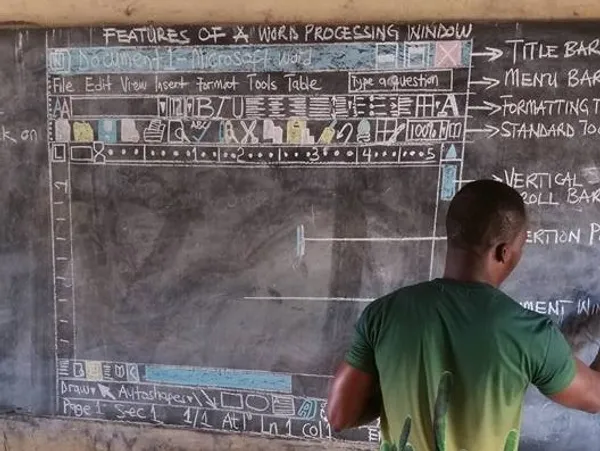 FEATURES OF A WORD PROCESSING WINDOW
W Document 1 - Microsoft Word
TITLE BAR
File Edit View Insert format Tools Table
Type a question
MENU BAR
AA B I U A
FORMATTING T
100%
STANDARD TOO
ck on
L 1 2 3 4 5
VERTICAL
ROLL BAR
ERTION P
MENT WIN
Draw Autoshapes
Page 1 Sec 1 1/1 At 1" Ln 1 Col 1